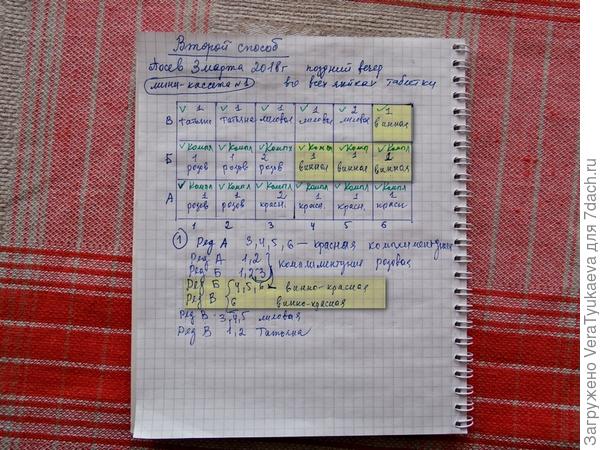 Второй способ
Посев 3 марта 2018г поздний вечер
мини-кассета №1 во всех ячейках таблетки
В ✓ 1 Татьяна ✓ 1 Татьяна ✓ 1 лиловая ✓ 1 лиловая ✓ 2 лиловая ✓ 1 винная
Б ✓ Компл 1 розов ✓ Компл 1 розов ✓ Компл 2 розов ✓ Компл 1 винная ✓ Компл 1 винная ✓ Компл винная
А ✓ Компл 1 розов ✓ Компл 1 розов ✓ Компл 2 красн. ✓ Компл 1 красн. ✓ Компл 1 красн. ✓ Компл 1 красн
1 2 3 4 5 6
① Ряд А 3,4,5,6 — красная комплиментуния
Ряд А 1,2
Ряд Б 1,2,3 комплиментуния розовая
Ряд Б 4,5,6 — винно-красная
Ряд В 6 винно-красная
Ряд В 3,4,5 лиловая
Ряд В 1,2 Татьяна
Загружено VeraTyukaeva для 7dach.ru